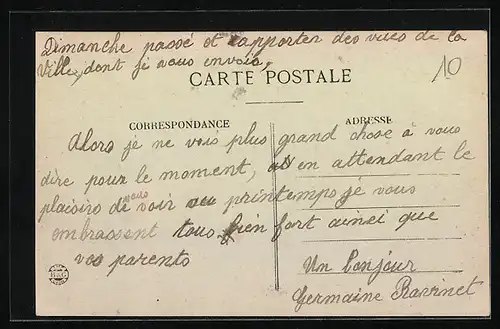 Dimanche passé et rapporter des vues de la
Ville, dont je vous envois,
10
CARTE POSTALE
CORRESPONDANCE
ADRESSE
Alors je ne vois plus grand chose à vous
dire pour le moment, en attendant le
plaisirs de vous voir au printemps je vous
embrassent tous bien fort ainsi que
vos parents
Un bonjour
Germaine Ravinet
B&G